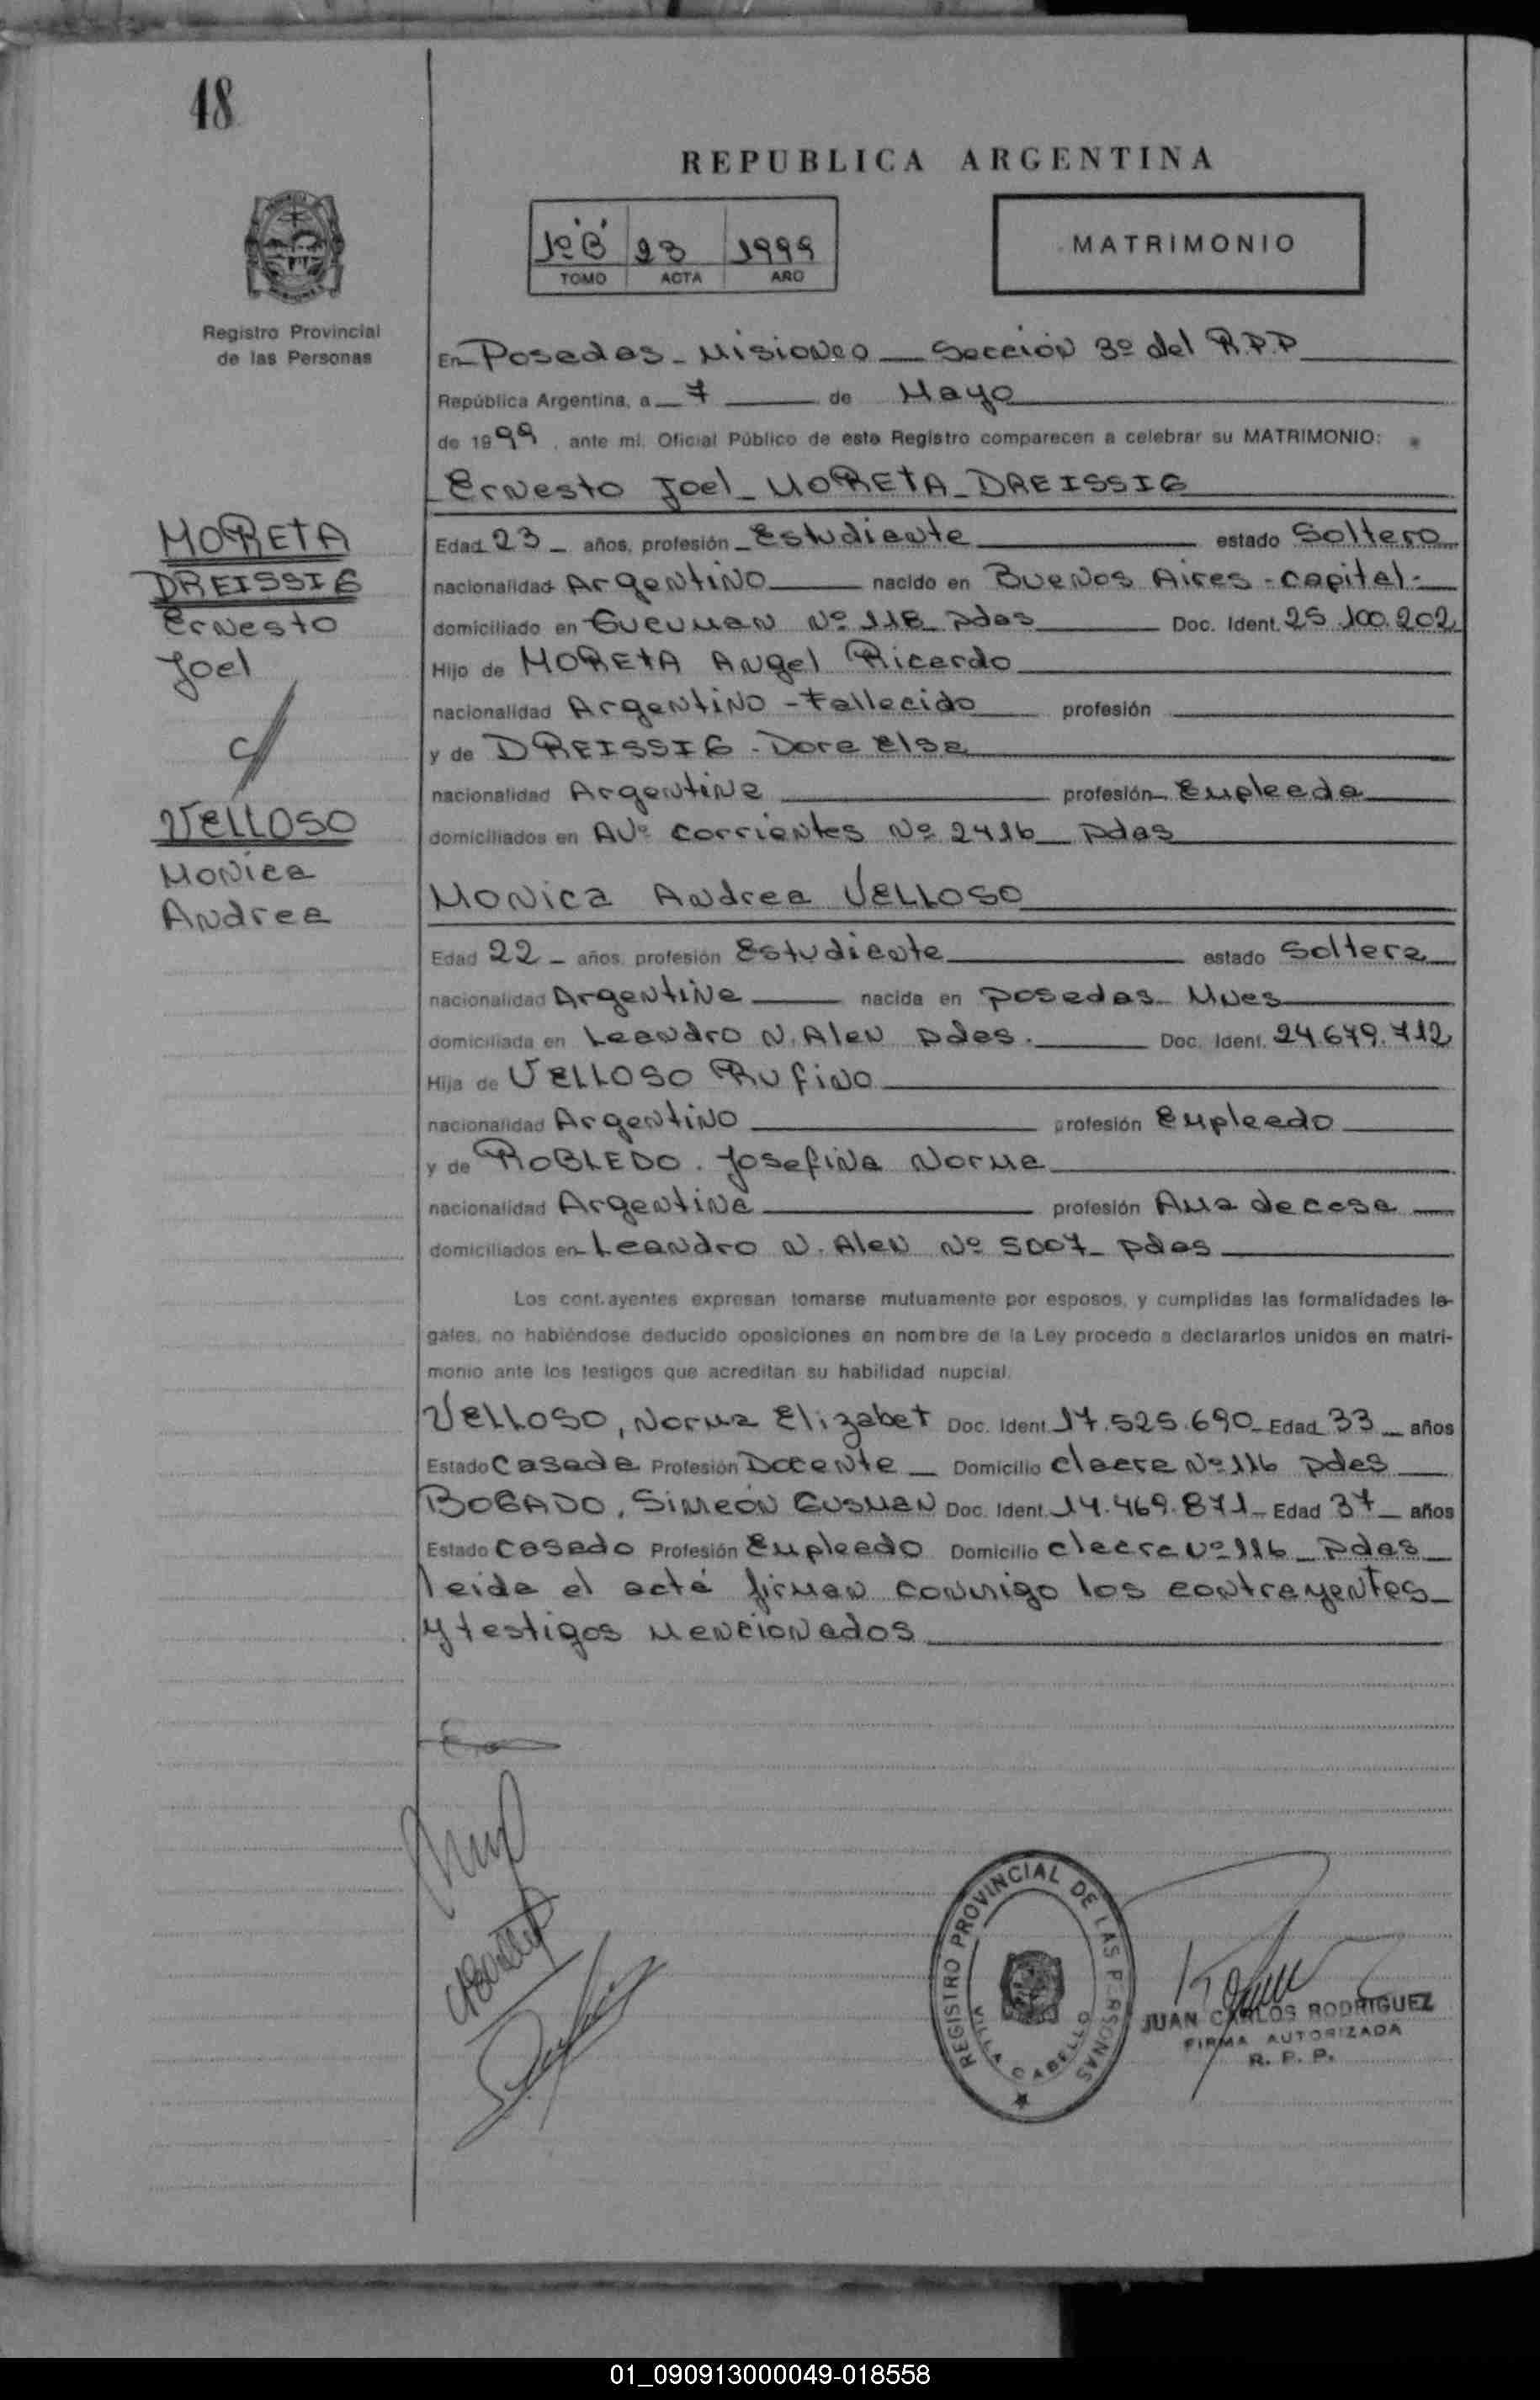 48
REPUBLICA ARGENTINA
1º "B" 23 1999
TOMO ACTA AÑO
MATRIMONIO
Registro Provincial
de las Personas
En Posadas - Misiones Sección 3º del R.P.P
República Argentina, a 7 de Mayo
de 1999, ante mí, Oficial Público de este Registro comparecen a celebrar su MATRIMONIO:
Ernesto Joel MORETA DREISSIG
MORETA
DREISSIG
Ernesto
Joel
c/
VELLOSO
Monica
Andrea
Edad 23 años, profesión Estudiante estado Soltero
nacionalidad Argentino nacido en Buenos Aires - Capital -
domiciliado en Nº 118 Pdas Doc. Ident. 25.100.202
Hijo de MORETA Angel Ricardo
nacionalidad Argentino - Fallecido profesión
y de DREISSIG - Dora Elsa
nacionalidad Argentina profesión Empleada
domiciliados en AVº Corrientes Nº 2416 Pdas
Monica Andrea VELLOSO
Edad 22 años, profesión Estudiante estado Soltera
nacionalidad Argentina nacida en Posadas Mnes
domiciliada en Leandro N. Alen Pdas. Doc. Ident. 24.679.712
Hija de VELLOSO Rufino
nacionalidad Argentino profesión Empleado
y de ROBLEDO. Josefina Norma
nacionalidad Argentina profesión Ama de casa
domiciliados en Leandro N. Alen Nº 5007 Pdas
Los contrayentes expresan tomarse mutuamente por esposos, y cumplidas las formalidades le-
gales, no habiéndose deducido oposiciones en nombre de la Ley procedo a declararlos unidos en matri-
monio ante los testigos que acreditan su habilidad nupcial.
VELLOSO, Norma Elizabet Doc. Ident. 17.525.690 Edad 33 años
Estado Casada Profesión Docente Domicilio chacra Nº 116 Pdas
BOGADO, Simeón Gusman Doc. Ident. 14.469.871 Edad 37 años
Estado Casado Profesión Empleado Domicilio chacra Nº 116 Pdas
leida el acta firman conmigo los contrayentes
y testigos mencionados
REGISTRO PROVINCIAL DE LAS PERSONAS
VILLA CABELLO
JUAN CARLOS RODRIGUEZ
FIRMA AUTORIZADA
R. P. P.
01_090913000049-018558